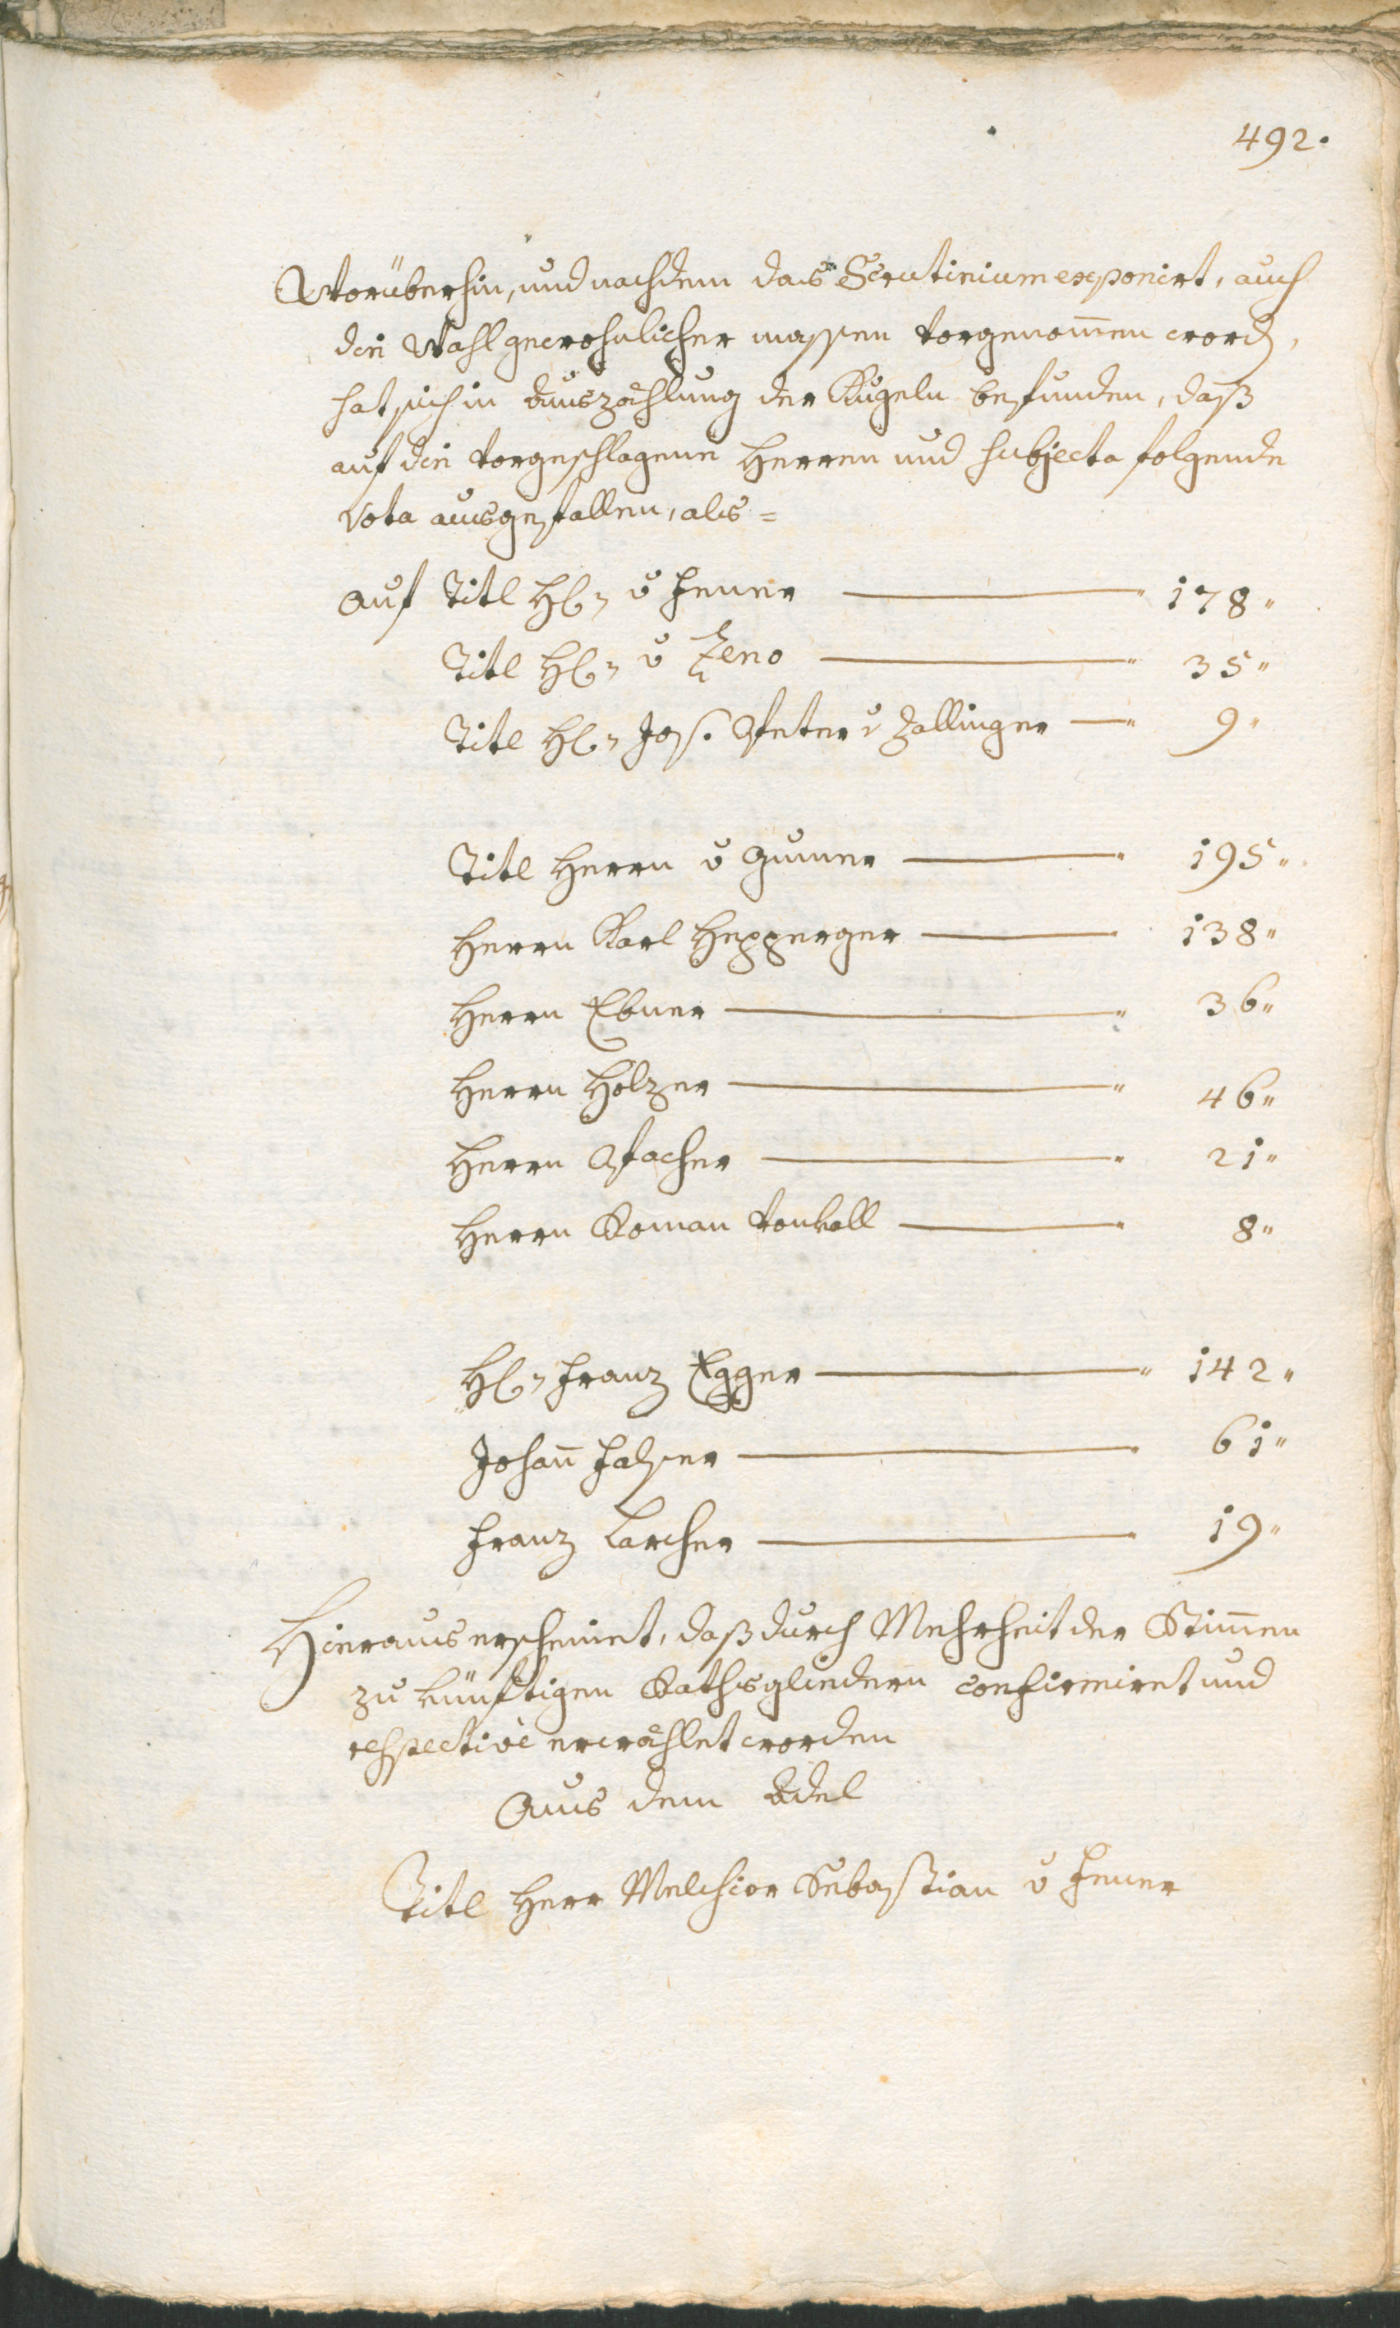 492.
Worüberhin, und nachdem das Scrutinium exponirt, auch
die Wahl gewohnlicher massen vorgenom̄en word,
hat sich in Auszählung der Kugeln befunden, daß
auf die vorgeschlagene Herren und subjecta folgende
Vota ausgefallen, als =
Auf Titl H. v Fenner — 178"
Titl H. v Zeno — 35"
Titl H. Jos. Peter v Zallinger — 9"
Titl Herrn v Gumer — 195"
Herrn Karl Hepperger — 138"
Herrn Ebner — 36"
Herrn Holzer — 46"
Herrn Pfacher — 21"
Herrn Roman Vonkall — 8"
H. Franz Egger — 142"
Johan̄ Falser — 61"
Franz Larcher — 19"
Hieraus erscheinet, daß durch Mehrheit der Stim̄en
zu künftigen Rathsgliedern confirmiret und
respective erwählet worden
Aus dem Adel
Titl Herr Melchior Sebastian v Fenner